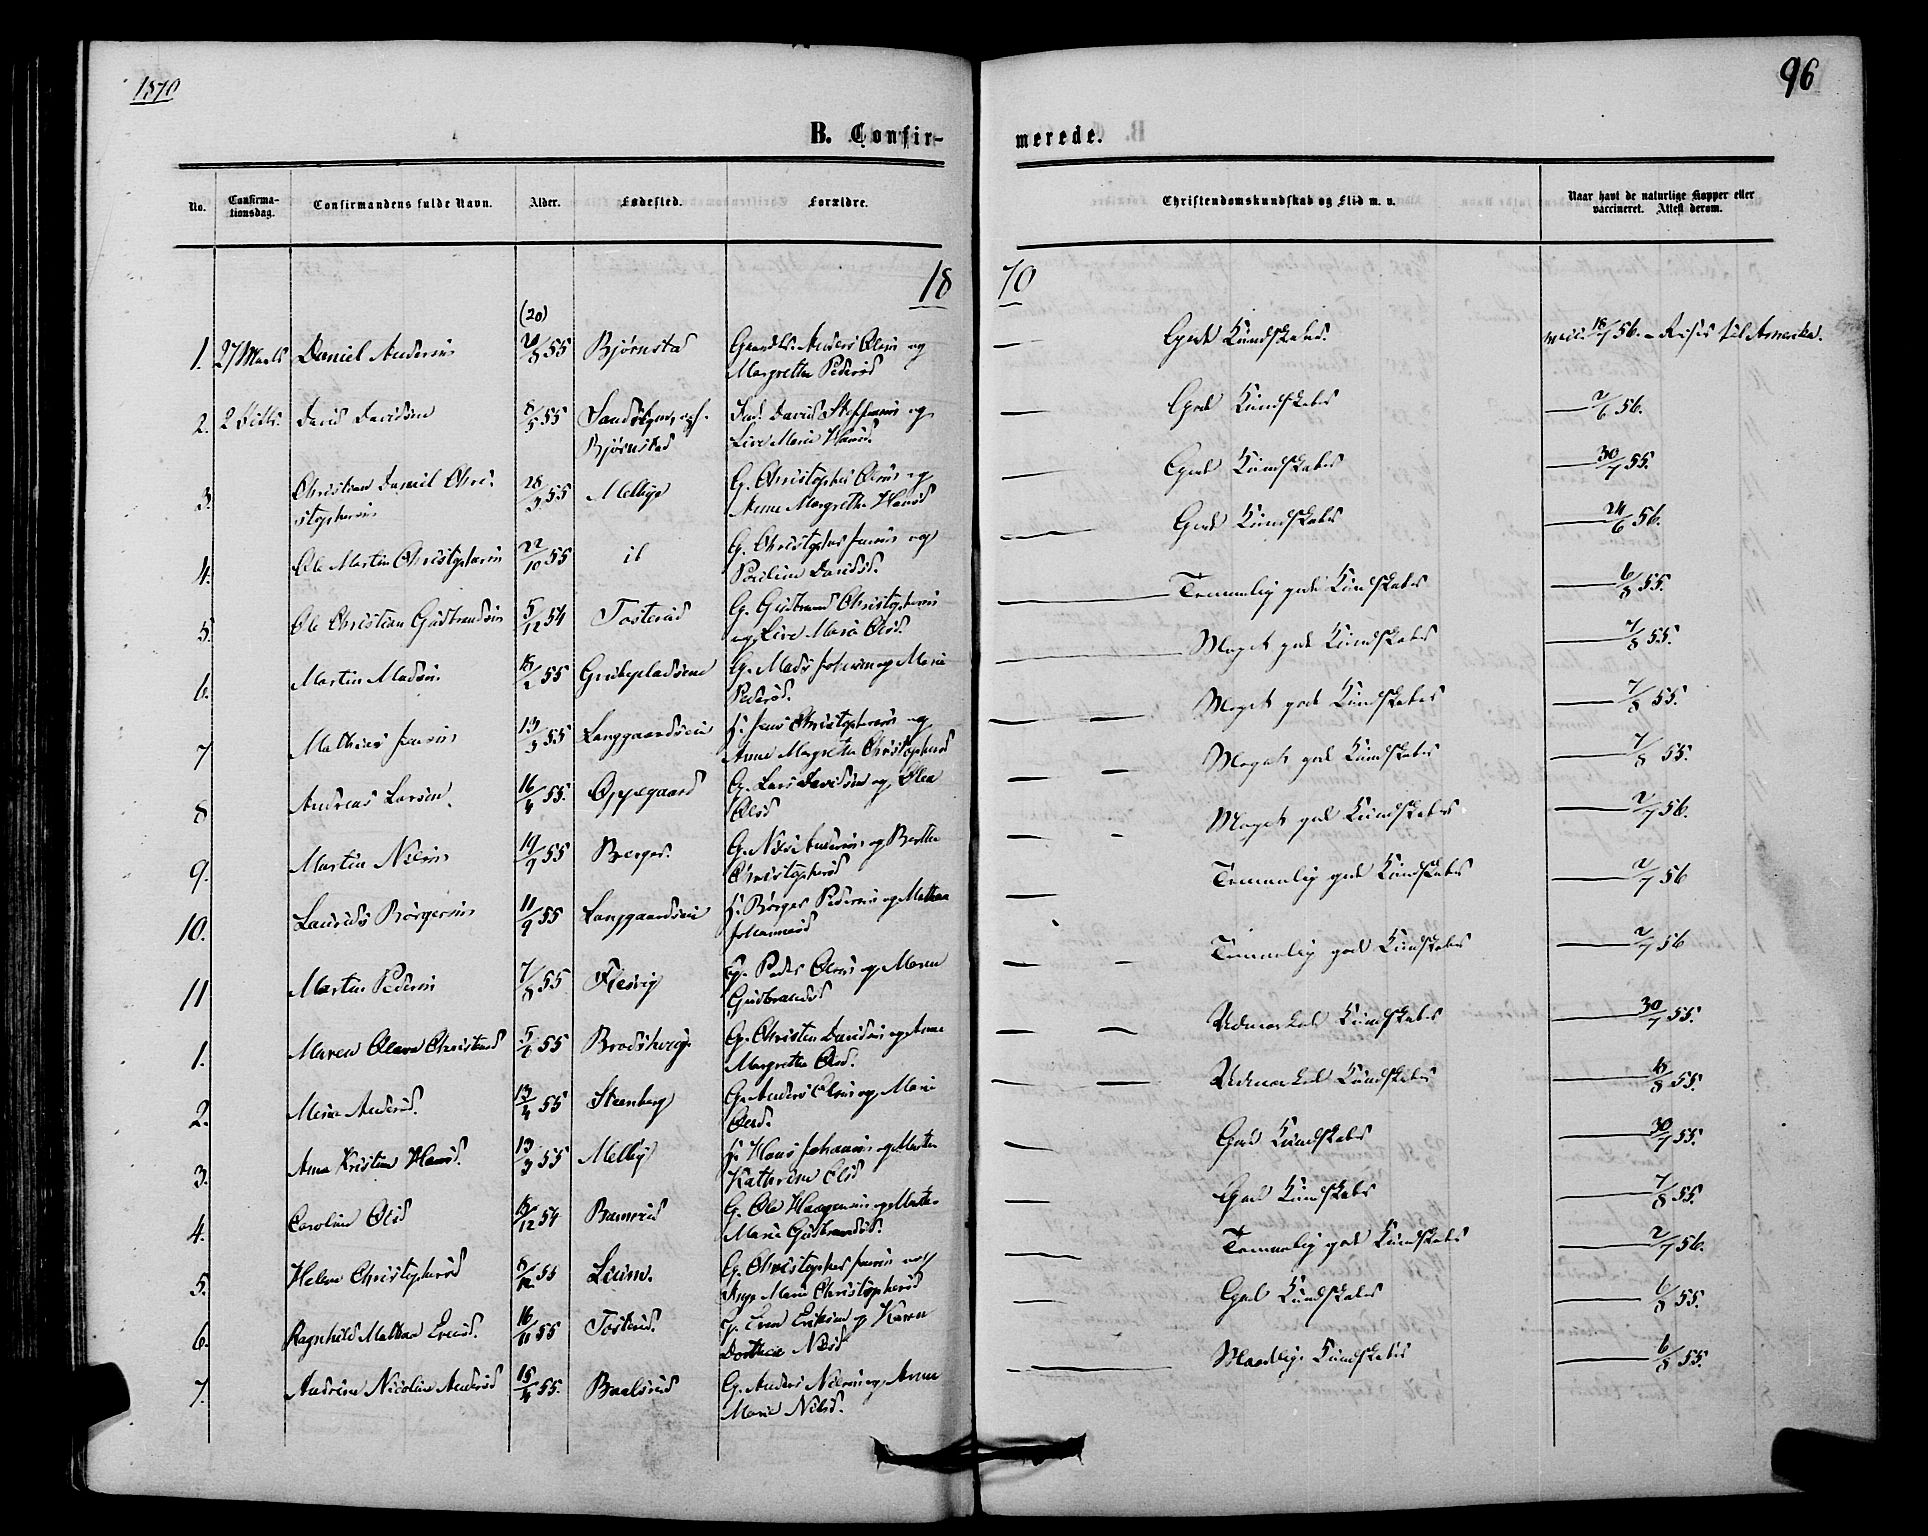 1870
96
B. Confir-
merede.
No.
Confirma-
tionsdag.
Confirmandens fulde Navn.
Alder.
Fødested.
Forældre.
Christendomskundskab og Flid m. v.
Naar havt de naturlige Kopper eller
vaccineret. Attest derom.
18 70
(20)
1. 27 Marts Daniel Andersen 55 Bjørnstad Anders Olsen og
Margrethe Pedersd
Gode Kundskaber. 18/7 56. - Reiser til Amerika.
2. David Davidsen 8/5 55
Bjørnstad David Steffensen og
Live Marie Hansd.
Gode Kundskaber 2/6 56.
3. Christian Daniel Chri-
stophersen 28/3 55 Melbye G. Christopher Olsen og
Anne Margrethe Hansd
Gode Kundskaber 30/7 55.
4. Ole Martin Christophersen 22/10 55 G. Christopher Jensen og
Davidsd.
Gode Kundskaber 24/6 56.
5. Ole Christian Gudbrandsen 5/12 54 Tosterud G. Gudbrand Christophersen
og Live Maria Olsd.
Temmelig gode Kundskaber 6/8 55.
6. Martin Madsen 18/2 55 G. Mads Johansen og Maria
Pedersd.
Meget gode Kundskaber 7/8 55.
7 Mathias Jensen 13/3 55 Langgaardseie H. Jens Christophersen og
Anne Margrethe Christophersd
Meget gode Kundskaber 7/8 55.
8 Andreas Larsen. 16/4 55. Oppegaard G. Lars Davidsen og Olea
Olsd
Meget gode Kundskaber 7/8 55.
9. Martin Nilsen 19/9 55 Berger. G. Nils Andersen og Berthe
Christophersd
Meget gode Kundskaber 2/7 56.
10. Lauritz Børgersen 11/9 55 Langgaardseie H. Børger Pedersen og Mathea
Johannesd
Temmelig gode Kundskaber 2/7 56
11 Martin Pedersen 7/8 55. Flesvig G. Peder Olsen og Maren
Gudbrandsd
Temmelig gode Kundskaber 2/7 56
1. Maren Oleva Christensd 5/6 55 Brodshaug G. Christen Davidsen og Anne
Margrethe Olsd.
Udmærket Kundskaber 30/7 55.
2. Mina Andersd. 13/4 55 Steenberg G. Anders Olsen og Marie
Olsd.
Udmærket Kundskaber 18/8 55.
3. Anne Kristine Hansd. 13/3 55 Melbye H. Hans Johansen og Marthe
Kathrine Olsd
Gode Kundskaber 30/7 55.
4. Caroline Olsd 18/12 54 G. Ole Haagensen og Marthe
Marie Gudbrandsd.
Gode Kundskaber 7/8 55.
5. Helene Christophersd 8/12 55 Lium. G. Christopher Jensen og
Marie Christophersd
Temmelig gode Kundskaber 2/7 56.
6. Ragnhild Mathea Evensd. 16/11 55 Tosterud. G. Even Eriksen og Karen
Dorthea Nilsd
Gode Kundskaber 6/8 55.
7. Andrine Nicoline Andersd 15/4 55. Baalsrud G. Anders Nilsen og Anne
Marie Nilsd.
Maadelige Kundskaber 6/8 55.